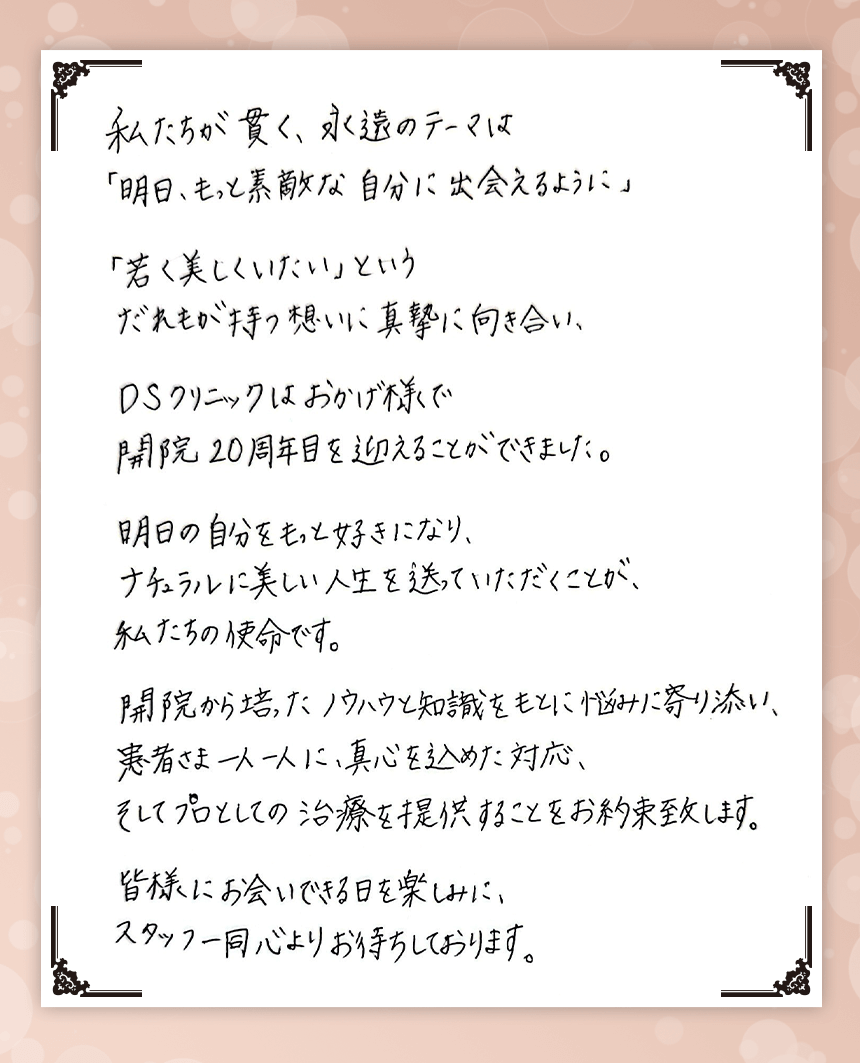 私たちが貫く、永遠のテーマは
「明日、もっと素敵な自分に出会えるように」
「若く美しくいたい」という
だれもが持つ想いに真摯に向き合い、
DSクリニックはおかげ様で
開院20周年目を迎えることができました。
明日の自分をもっと好きになり、
ナチュラルに美しい人生を送っていただくことが、
私たちの使命です。
開院から培ったノウハウと知識をもとに悩みに寄り添い、
患者さま一人一人に、真心を込めた対応、
そしてプロとしての治療を提供することをお約束致します。
皆様にお会いできる日を楽しみに、
スタッフ一同心よりお待ちしております。